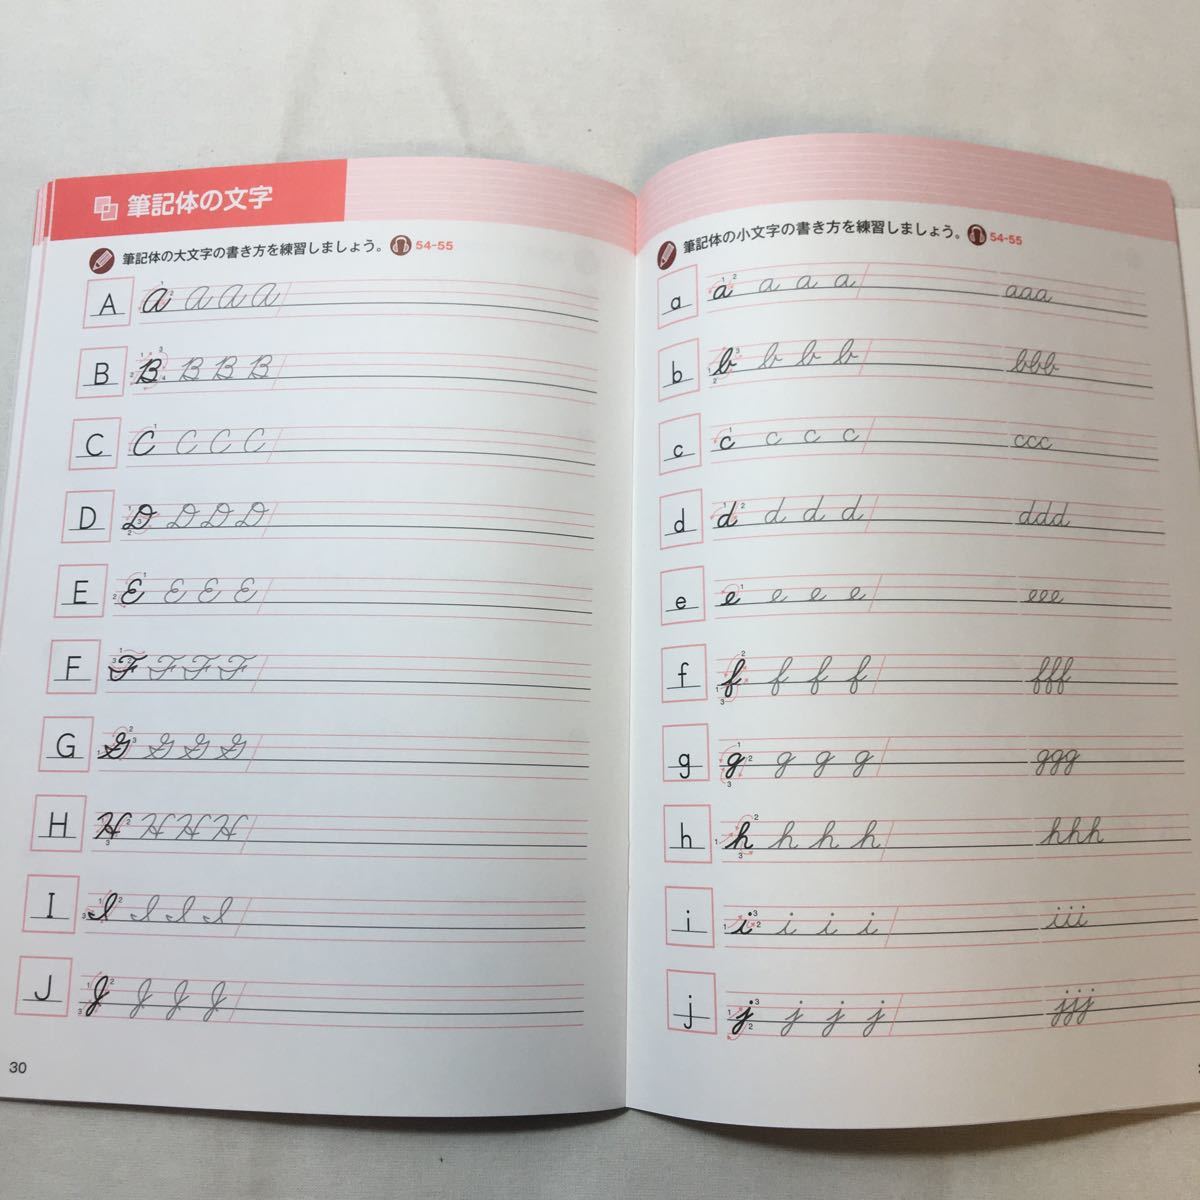 筆記体の文字
筆記体の大文字の書き方を練習しましょう。 54-55
A A A A A
B B B B B
C C C C C
D D D D D
E E E E E
F F F F F
G G G G G
H H H H H
I I I I I
J J J J J
30
筆記体の小文字の書き方を練習しましょう。 54-55
a a a a a aaa
b b b b b bbb
c c c c c ccc
d d d d d ddd
e e e e e eee
f f f f f fff
g g g g g ggg
h h h h h hhh
i i i i i iii
j j j j j jjj